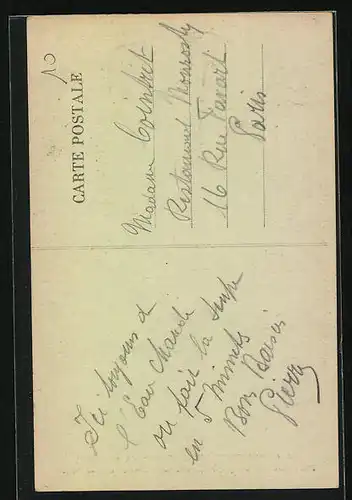 CARTE POSTALE
10
Madame Cointrit
Restaurant
16 Rue Favart
Paris
Ici toujours d
l'Eau chaude
on fait la soupe
en 5 minutes
Bon Baiser
Pierre